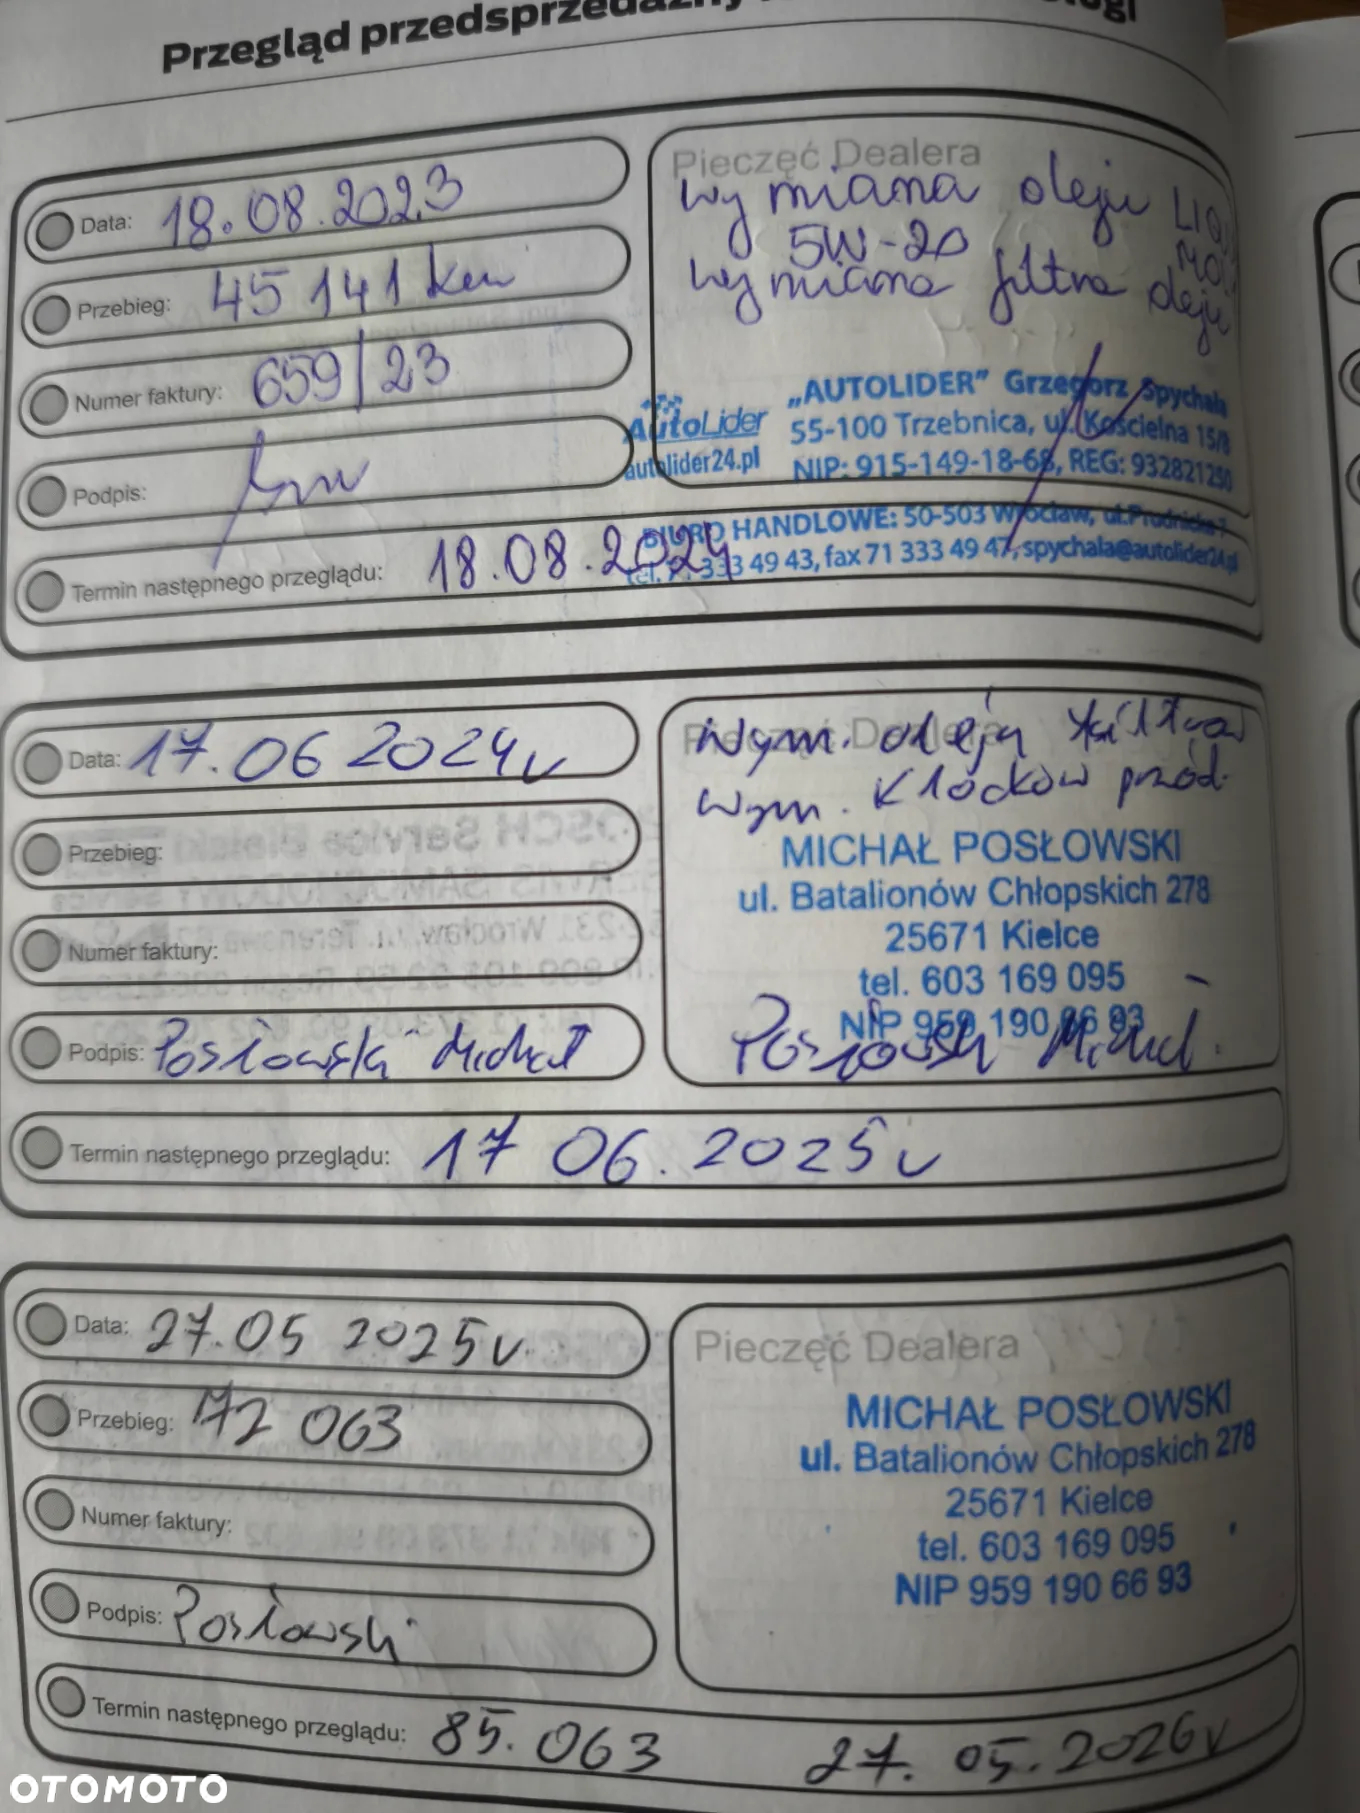 Przegląd przedsprzedażny
Data: 18.08.2023
Przebieg: 45 141 km
Numer faktury: 659/23
Podpis:
Termin następnego przeglądu: 18.08.2024
Pieczęć Dealera
wymiana oleju
5W-20
wymiana filtra oleju
AutoLider
autolider24.pl
„AUTOLIDER” Grzegorz Spychała
55-100 Trzebnica, ul. Kościelna 15/8
NIP: 915-149-18-68, REG: 932821250
BIURO HANDLOWE: 50-503 Wrocław,
333 49 43, fax 71 333 49 47, spychala@autolider24.pl
Data: 17.06 2024r
Przebieg:
Numer faktury:
Podpis: Posłowski Michał
Termin następnego przeglądu: 17 06.2025r
Pieczęć Dealera
wym. oleju filtra
wym. klocków przód.
MICHAŁ POSŁOWSKI
ul. Batalionów Chłopskich 278
25671 Kielce
tel. 603 169 095
NIP 959 190 66 93
Posłowski Michał
Data: 27.05 2025r.
Przebieg: 72 063
Numer faktury:
Podpis: Posłowski
Termin następnego przeglądu: 85.063 27.05.2026r
Pieczęć Dealera
MICHAŁ POSŁOWSKI
ul. Batalionów Chłopskich 278
25671 Kielce
tel. 603 169 095
NIP 959 190 66 93
OTOMOTO